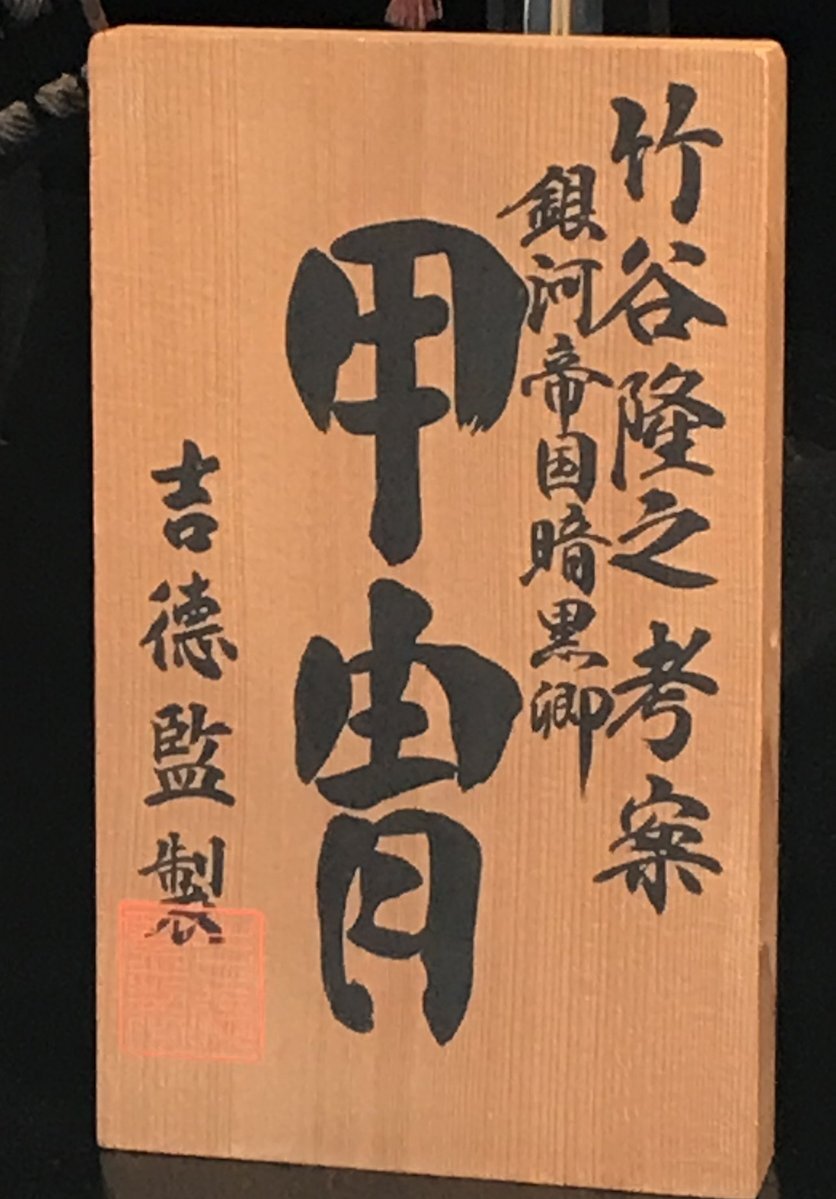 竹谷隆之考案
銀河帝国暗黒卿
甲冑
吉德監製